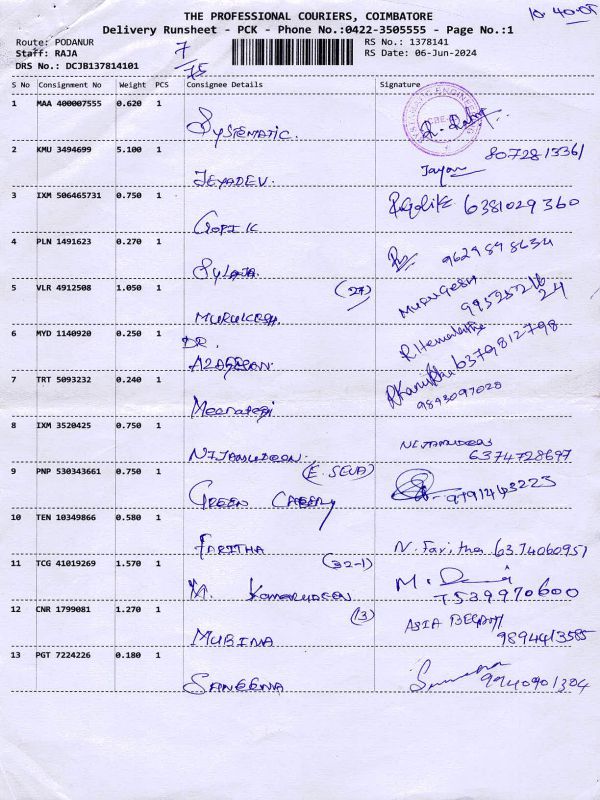 10.40.05
THE PROFESSIONAL COURIERS, COIMBATORE
Delivery Runsheet - PCK - Phone No.:0422-3505555 - Page No.:1
Route: PODANUR
7
RS No.: 1378141
Staff: RAJA
RS Date: 06-Jun-2024
DRS No.: DCJB137814101
75
S No Consignment No Weight PCS Consignee Details Signature
1 MAA 400007555 0.620 1
SYSTEMATIC.
2 KMU 3494699 5.100 1
JEYADEV.
Jayan 8072813361
3 IXM 506465731 0.750 1
GOPI K
6381029360
4 PLN 1491623 0.270 1
SYLAJA.
9629898634
5 VLR 4912508 1.050 1
(27)
MURUKESH.
MURUGESH
9952521616
24
6 MYD 1140920 0.250 1
DR.
R Hemalatha
6379812798
7 TRT 5093232 0.240 1
9893097028
8 IXM 3520425 0.750 1
NIJAMUDEEN.
NIJAMUDEEN
6374728697
9 PNP 530343661 0.750 1
(E. SEVA)
GREEN
9791463223
10 TEN 10349866 0.580 1
FARITHA
N. Faritha 6374060951
11 TCG 41019269 1.570 1
(32-1)
M. KAMARUDEEN
M.
7539970600
12 CNR 1799081 1.270 1
(3)
MUBINA
ASIA BEGAM
9894413585
13 PGT 7224226 0.180 1
SAMEENA
9940901304